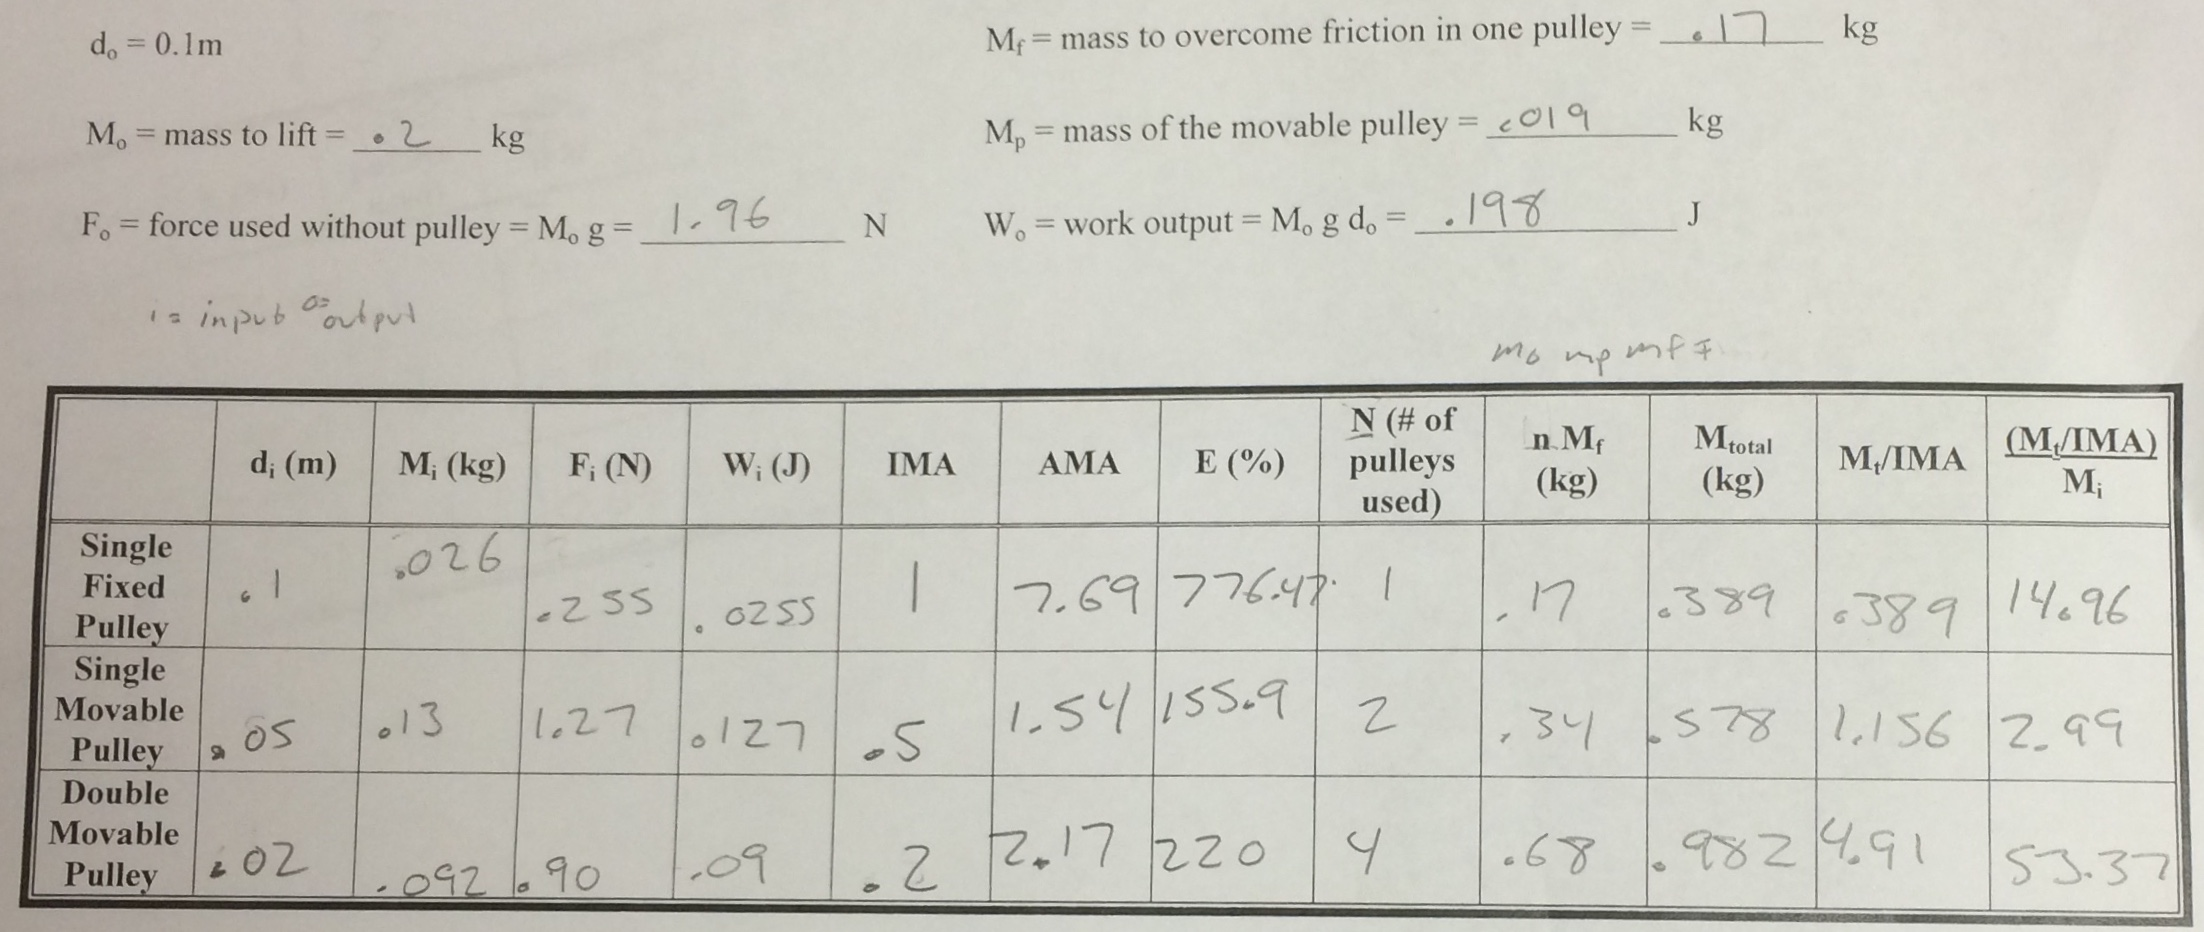 dₒ = 0.1m
M_f = mass to overcome friction in one pulley = .17 kg
Mₒ = mass to lift = .2 kg
Mₚ = mass of the movable pulley = .019 kg
Fₒ = force used without pulley = Mₒ g = 1.96 N
Wₒ = work output = Mₒ g dₒ = .198 J
i = input o= output
mo mp mf
dᵢ (m) Mᵢ (kg) Fᵢ (N) Wᵢ (J) IMA AMA E (%) N (# of pulleys used) n M_f (kg) M_total (kg) Mₜ/IMA (Mₜ/IMA) Mᵢ
Single Fixed Pulley .1 .026 .255 .0255 1 7.69 776.47 1 .17 .389 .389 14.96
Single Movable Pulley .05 .13 1.27 .127 .5 1.54 155.9 2 .34 .578 1.156 2.99
Double Movable Pulley .02 .092 .90 .09 .2 2.17 220 4 .68 .982 4.91 53.37